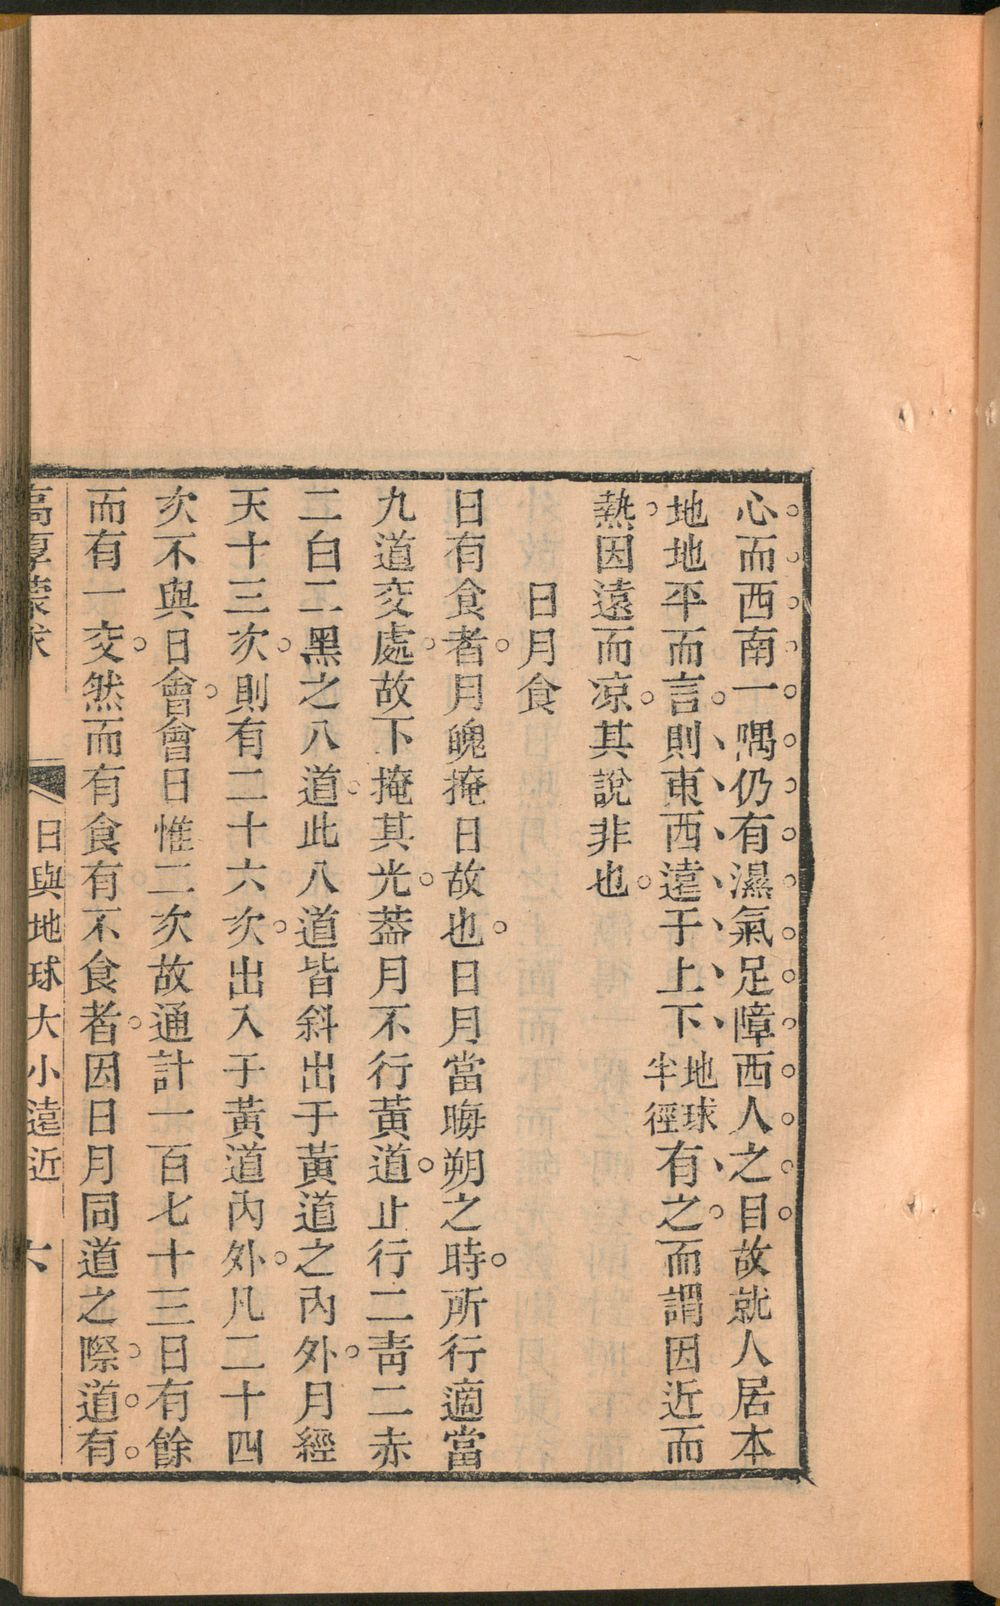 心而西南一隅仍有濕氣足障西人之目故就人居本
地地平而言則東西遠于上下地球半徑有之而謂因近而
熱因遠而凉其說非也
日月食
日有食者月魄掩日故也日月當晦朔之時所行適當
九道交處故下掩其光葢月不行黃道止行二靑二赤
二白二黑之八道此八道皆斜出于黃道之內外月經
天十三次則有二十六次出入于黃道內外凡二十四
次不與日會會日惟二次故通計一百七十三日有餘
而有一交然而有食有不食者因日月同道之際道有
高厚蒙求
日與地球大小遠近
六